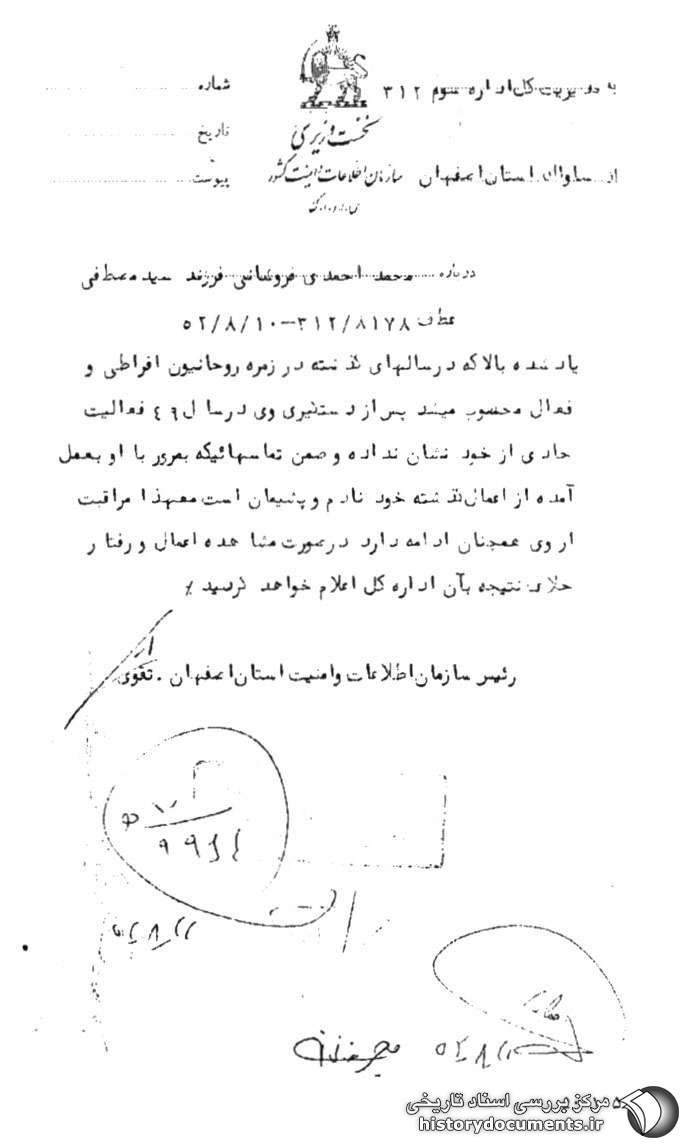 به مدیریت کل اداره سوم ۳۱۲
از ساواک استان اصفهان
نخست وزیری
سازمان اطلاعات و امنیت کشور
شماره
تاریخ
پیوست
درباره محمد احمدی فروشانی فرزند سید مصطفی
عطف ۳۱۲/۸۱۷۸-۵۲/۸/۱۰
یاد شده بالا که در سالهای گذشته در زمره روحانیون افراطی و
فعال محسوب میشد پس از دستگیری وی در سال ۴۹ فعالیت
حادی از خود نشان نداده و ضمن تماسهائیکه بمرور با او بعمل
آمده از اعمال گذشته خود نادم و پشیمان است معهذا مراقبت
از وی همچنان ادامه دارد در صورت مشاهده اعمال و رفتار
حادی نتیجه بآن اداره کل اعلام خواهد گردید
رئیس سازمان اطلاعات و امنیت استان اصفهان . تقوی
مرکز بررسی اسناد تاریخی
historydocuments.ir